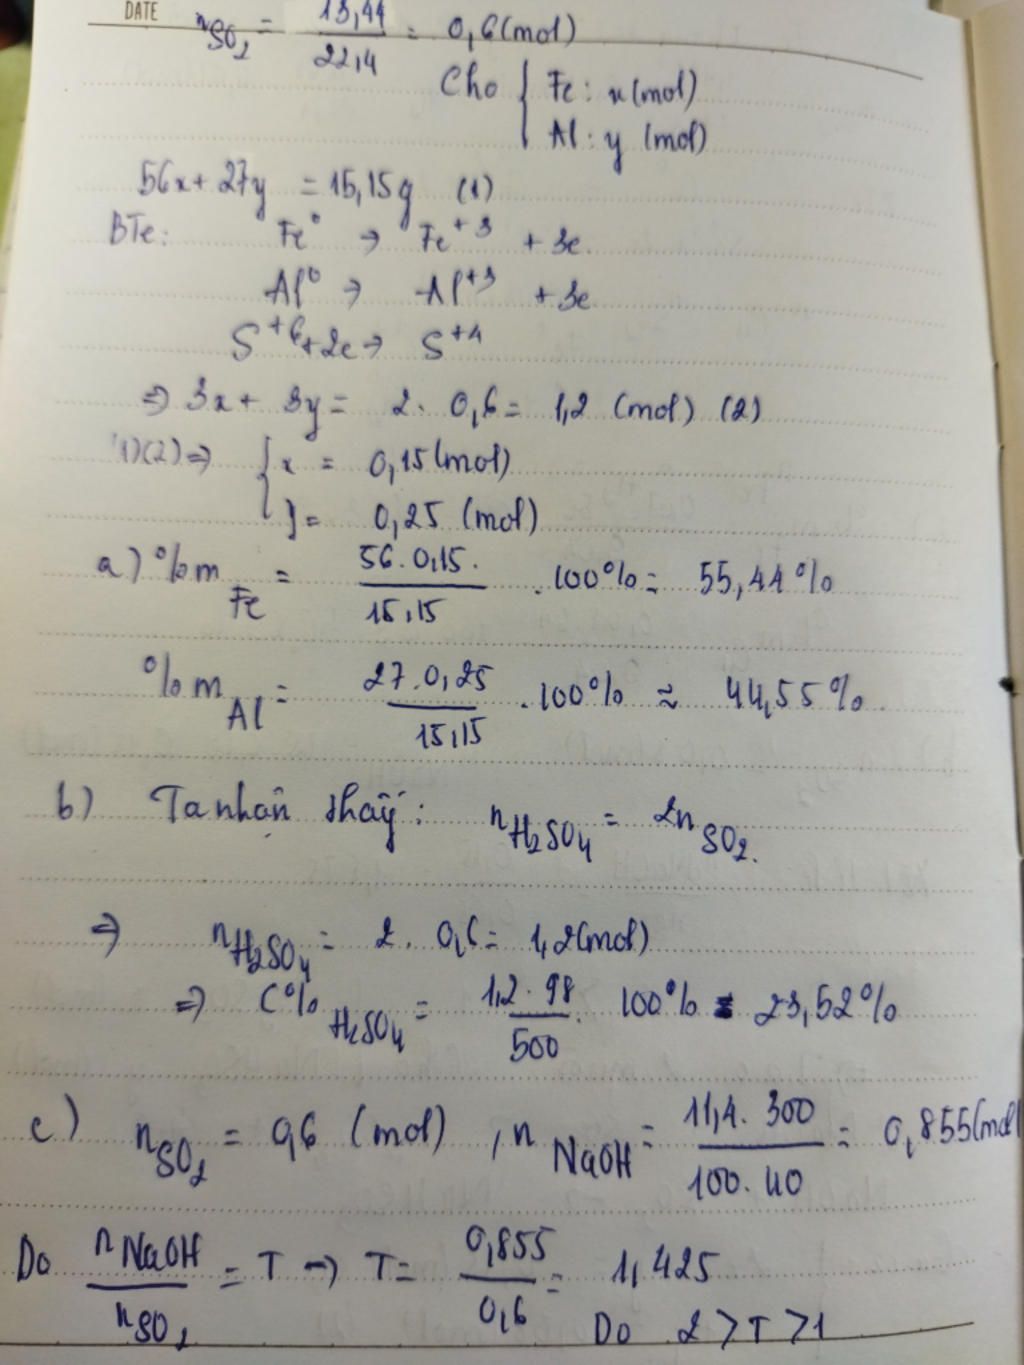 DATE
nSO2 = 13,44 / 22,4 = 0,6 (mol)
Cho { Fe: x (mol)
Al: y (mol)
56x + 27y = 15,15g (1)
BTe: Fe⁰ → Fe⁺³ + 3e.
Al⁰ → Al⁺³ + 3e
S⁺⁶ + 2e → S⁺⁴
⇒ 3x + 3y = 2. 0,6 = 1,2 (mol) (2)
(1)(2) ⇒ { x = 0,15 (mol)
y = 0,25 (mol)
a) %mFe = 56.0,15. / 15,15 . 100% = 55,44%
%mAl = 27.0,25 / 15,15 . 100% ≈ 44,55%.
b) Ta nhận thấy: nH2SO4 = 2nSO2.
⇒ nH2SO4 = 2. 0,6 = 1,2 (mol)
⇒ C%H2SO4 = 1,2 . 98 / 500 . 100% = 23,52%
c) nSO2 = 0,6 (mol), nNaOH = 11,4. 300 / 100. 40 = 0,855 (mol
Do nNaOH / nSO2 = T → T = 0,855 / 0,6 = 1,425
Do 2 > T > 1